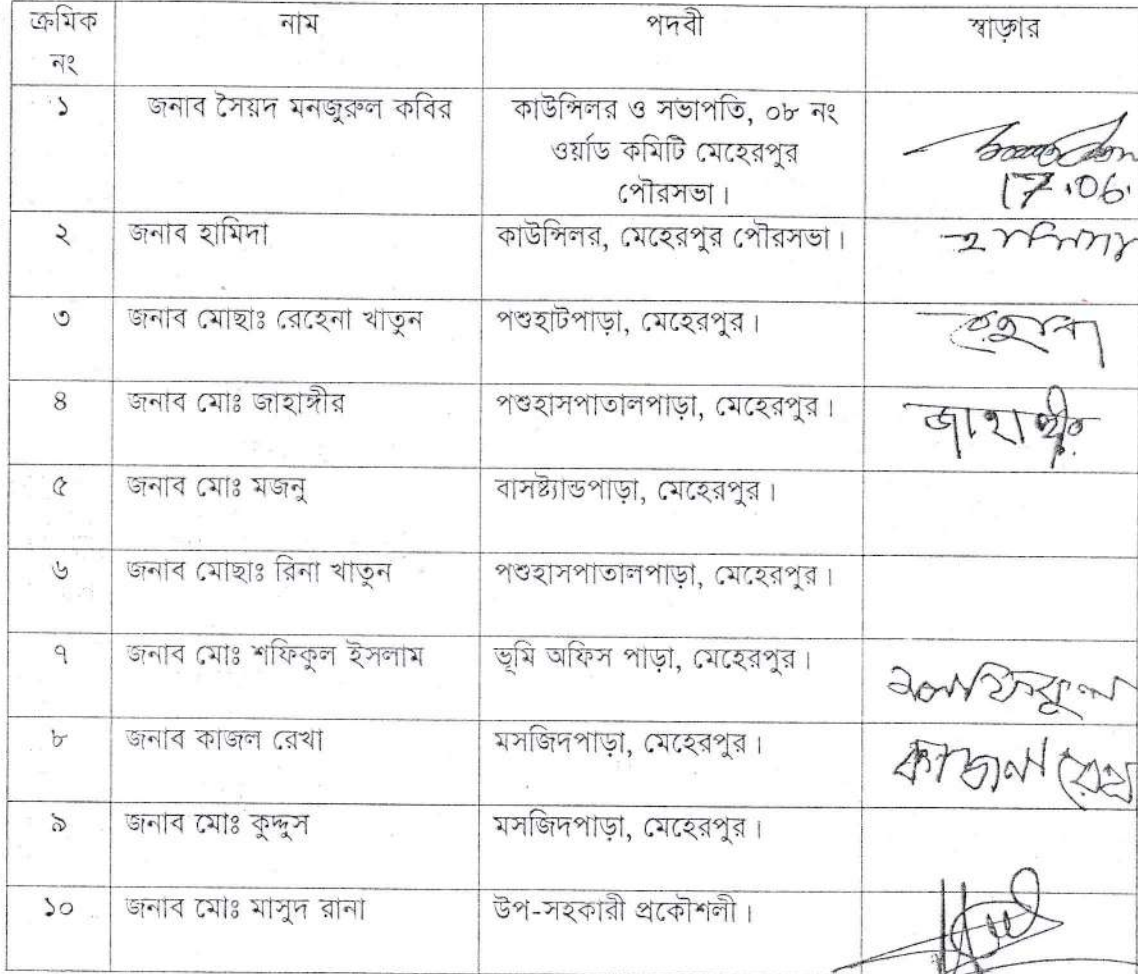 ক্রমিক নং নাম পদবী স্বাক্ষার
১ জনাব সৈয়দ মনজুরুল কবির কাউন্সিলর ও সভাপতি, ০৮ নং
ওর্য়াড কমিটি মেহেরপুর
পৌরসভা।
17.06.
২ জনাব হামিদা কাউন্সিলর, মেহেরপুর পৌরসভা। হামিদা
৩ জনাব মোছাঃ রেহেনা খাতুন পশুহাটপাড়া, মেহেরপুর।
৪ জনাব মোঃ জাহাঙ্গীর পশুহাসপাতালপাড়া, মেহেরপুর। জাহাঙ্গীর
৫ জনাব মোঃ মজনু বাসষ্ট্যান্ডপাড়া, মেহেরপুর।
৬ জনাব মোছাঃ রিনা খাতুন পশুহাসপাতালপাড়া, মেহেরপুর।
৭ জনাব মোঃ শফিকুল ইসলাম ভূমি অফিস পাড়া, মেহেরপুর।
৮ জনাব কাজল রেখা মসজিদপাড়া, মেহেরপুর। কাজল রেখা
৯ জনাব মোঃ কুদ্দুস মসজিদপাড়া, মেহেরপুর।
১০ জনাব মোঃ মাসুদ রানা উপ-সহকারী প্রকৌশলী।